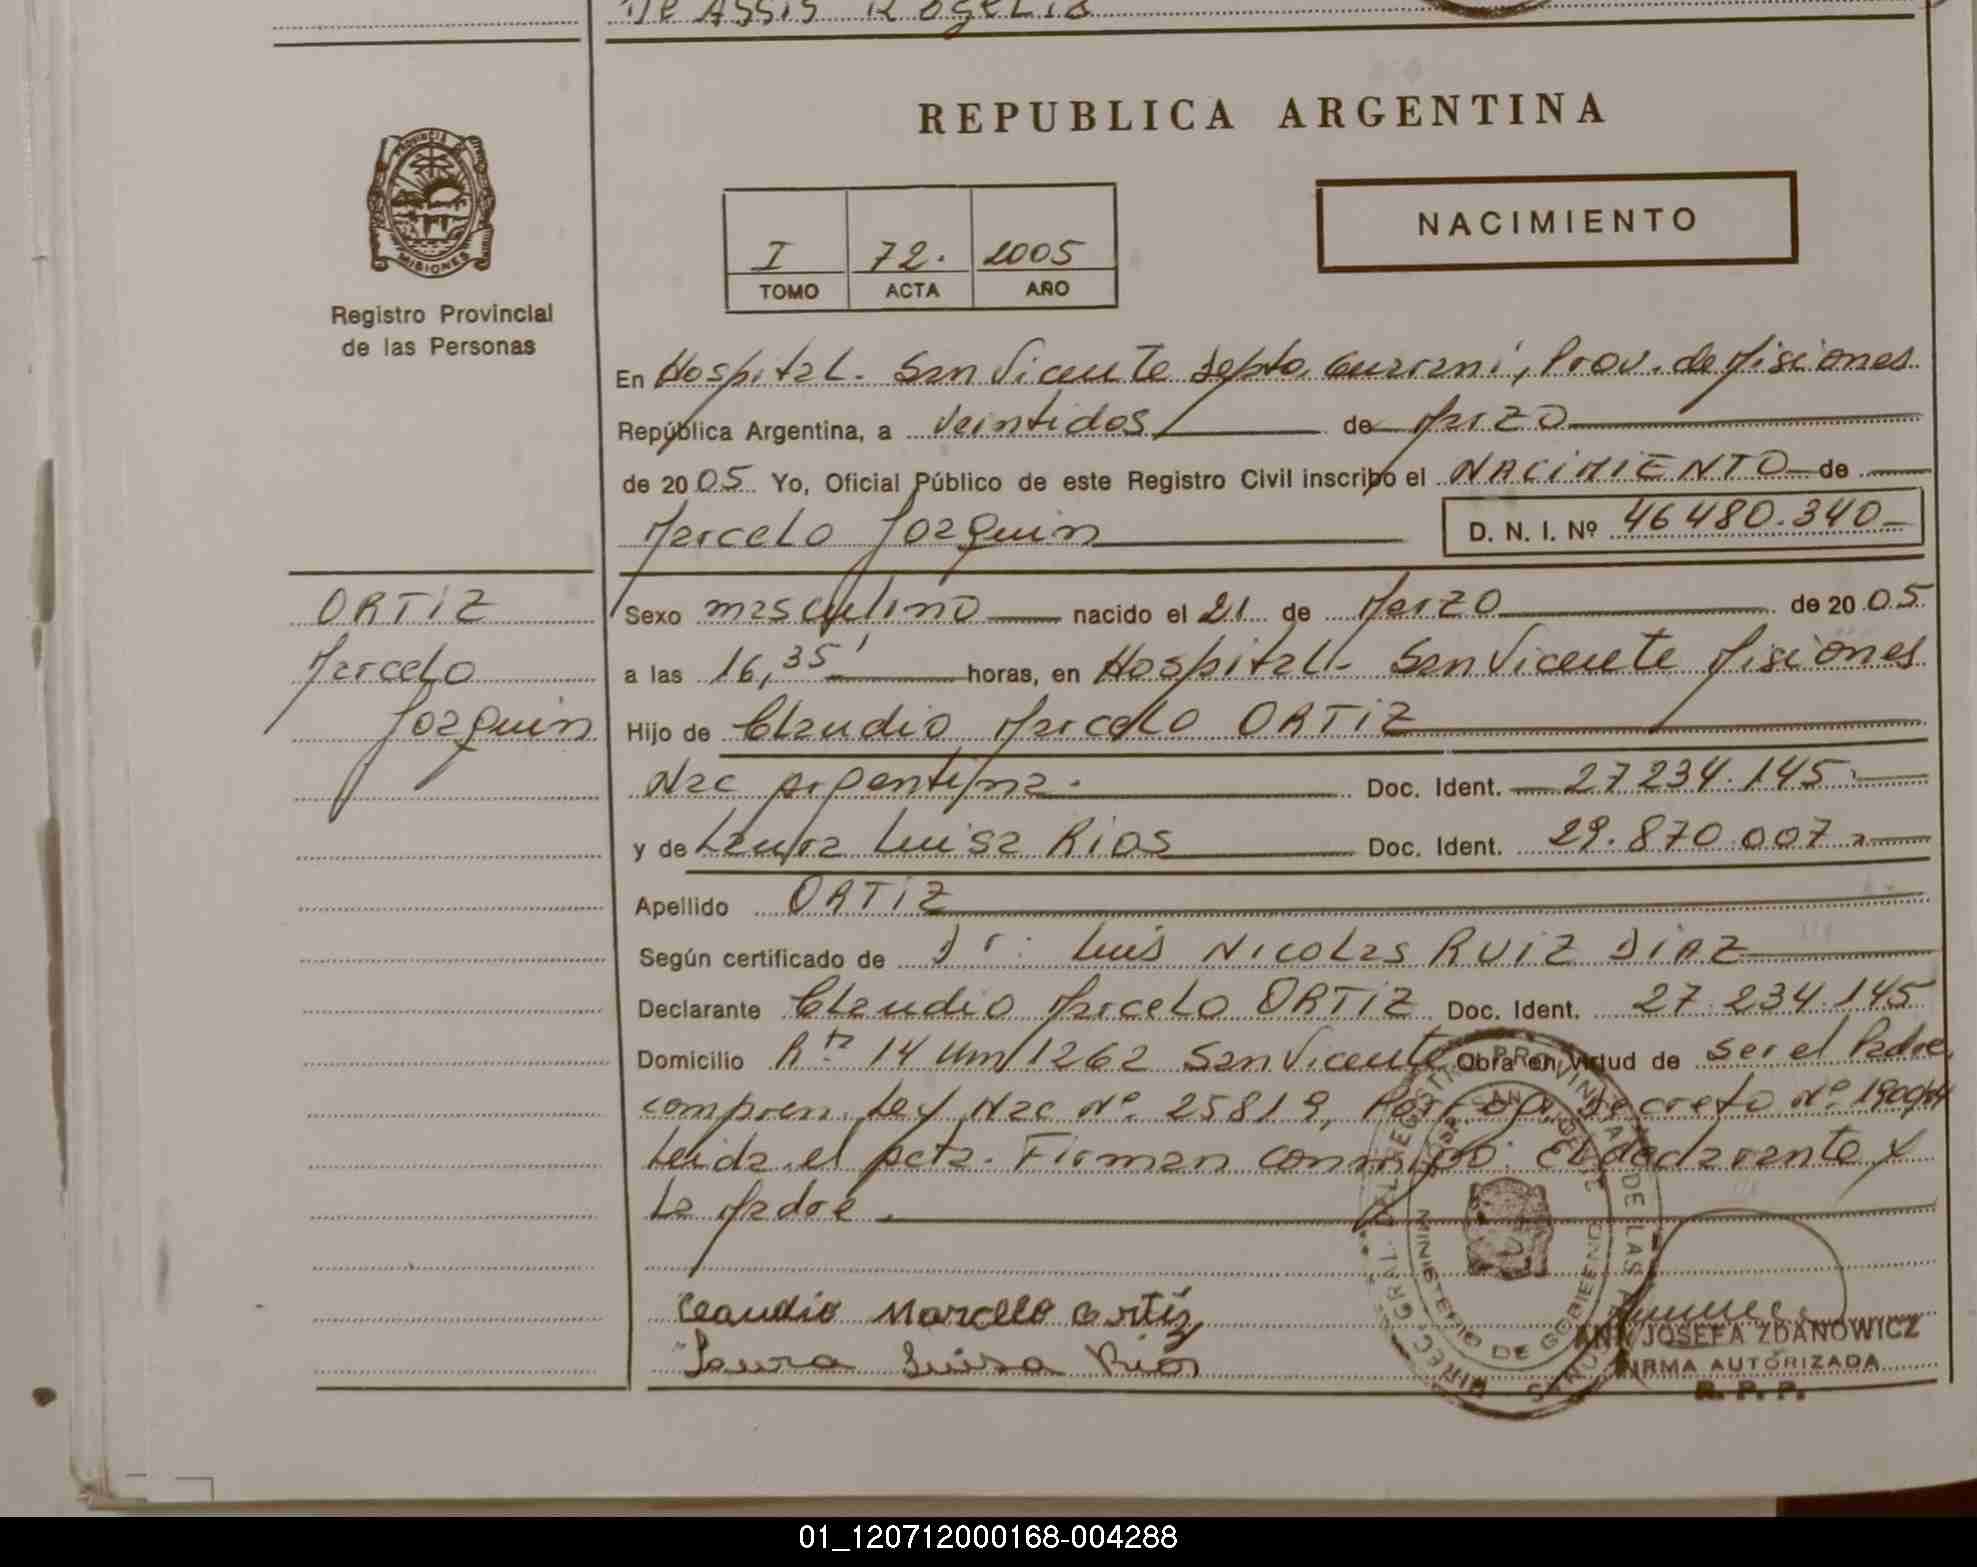 De Assis Rogelio
REPUBLICA ARGENTINA
PROVINCIA DE
MISIONES
Registro Provincial
de las Personas
NACIMIENTO
I 72. 2005
TOMO ACTA AÑO
En Hospital. San Vicente Depto. Guarani, Prov. de Misiones
República Argentina, a veintidos de Marzo
de 2005 Yo, Oficial Público de este Registro Civil inscribo el NACIMIENTO de
Marcelo Joaquin D. N. I. Nº 46480.340
ORTIZ
Marcelo
Joaquin
Sexo masculino nacido el 21 de Marzo de 2005
a las 16,35' horas, en Hospital. San Vicente Misiones
Hijo de Claudio Marcelo ORTIZ
Nac Argentina. Doc. Ident. 27234.145
y de Laura Luisa Rios Doc. Ident. 29.870.007
Apellido ORTIZ
Según certificado de Dr. Luis Nicolas RUIZ DIAZ
Declarante Claudio Marcelo ORTIZ Doc. Ident. 27.234.145
Domicilio Rta 14 Km 1262 San Vicente Obra en virtud de ser el Padre,
compren. Ley Nac Nº 25819, Decreto Nº
Leida el acta. Firman conmigo: El declarante y
La Madre.
Claudio Marcelo Ortiz
Laura Luisa Rios
DIREC. GRAL. DEL REGISTRO PROVINCIAL DE LAS
MINISTERIO DE GOBIERNO
ANA JOSEFA ZDANOWICZ
FIRMA AUTORIZADA
R. P. P.
01_120712000168-004288